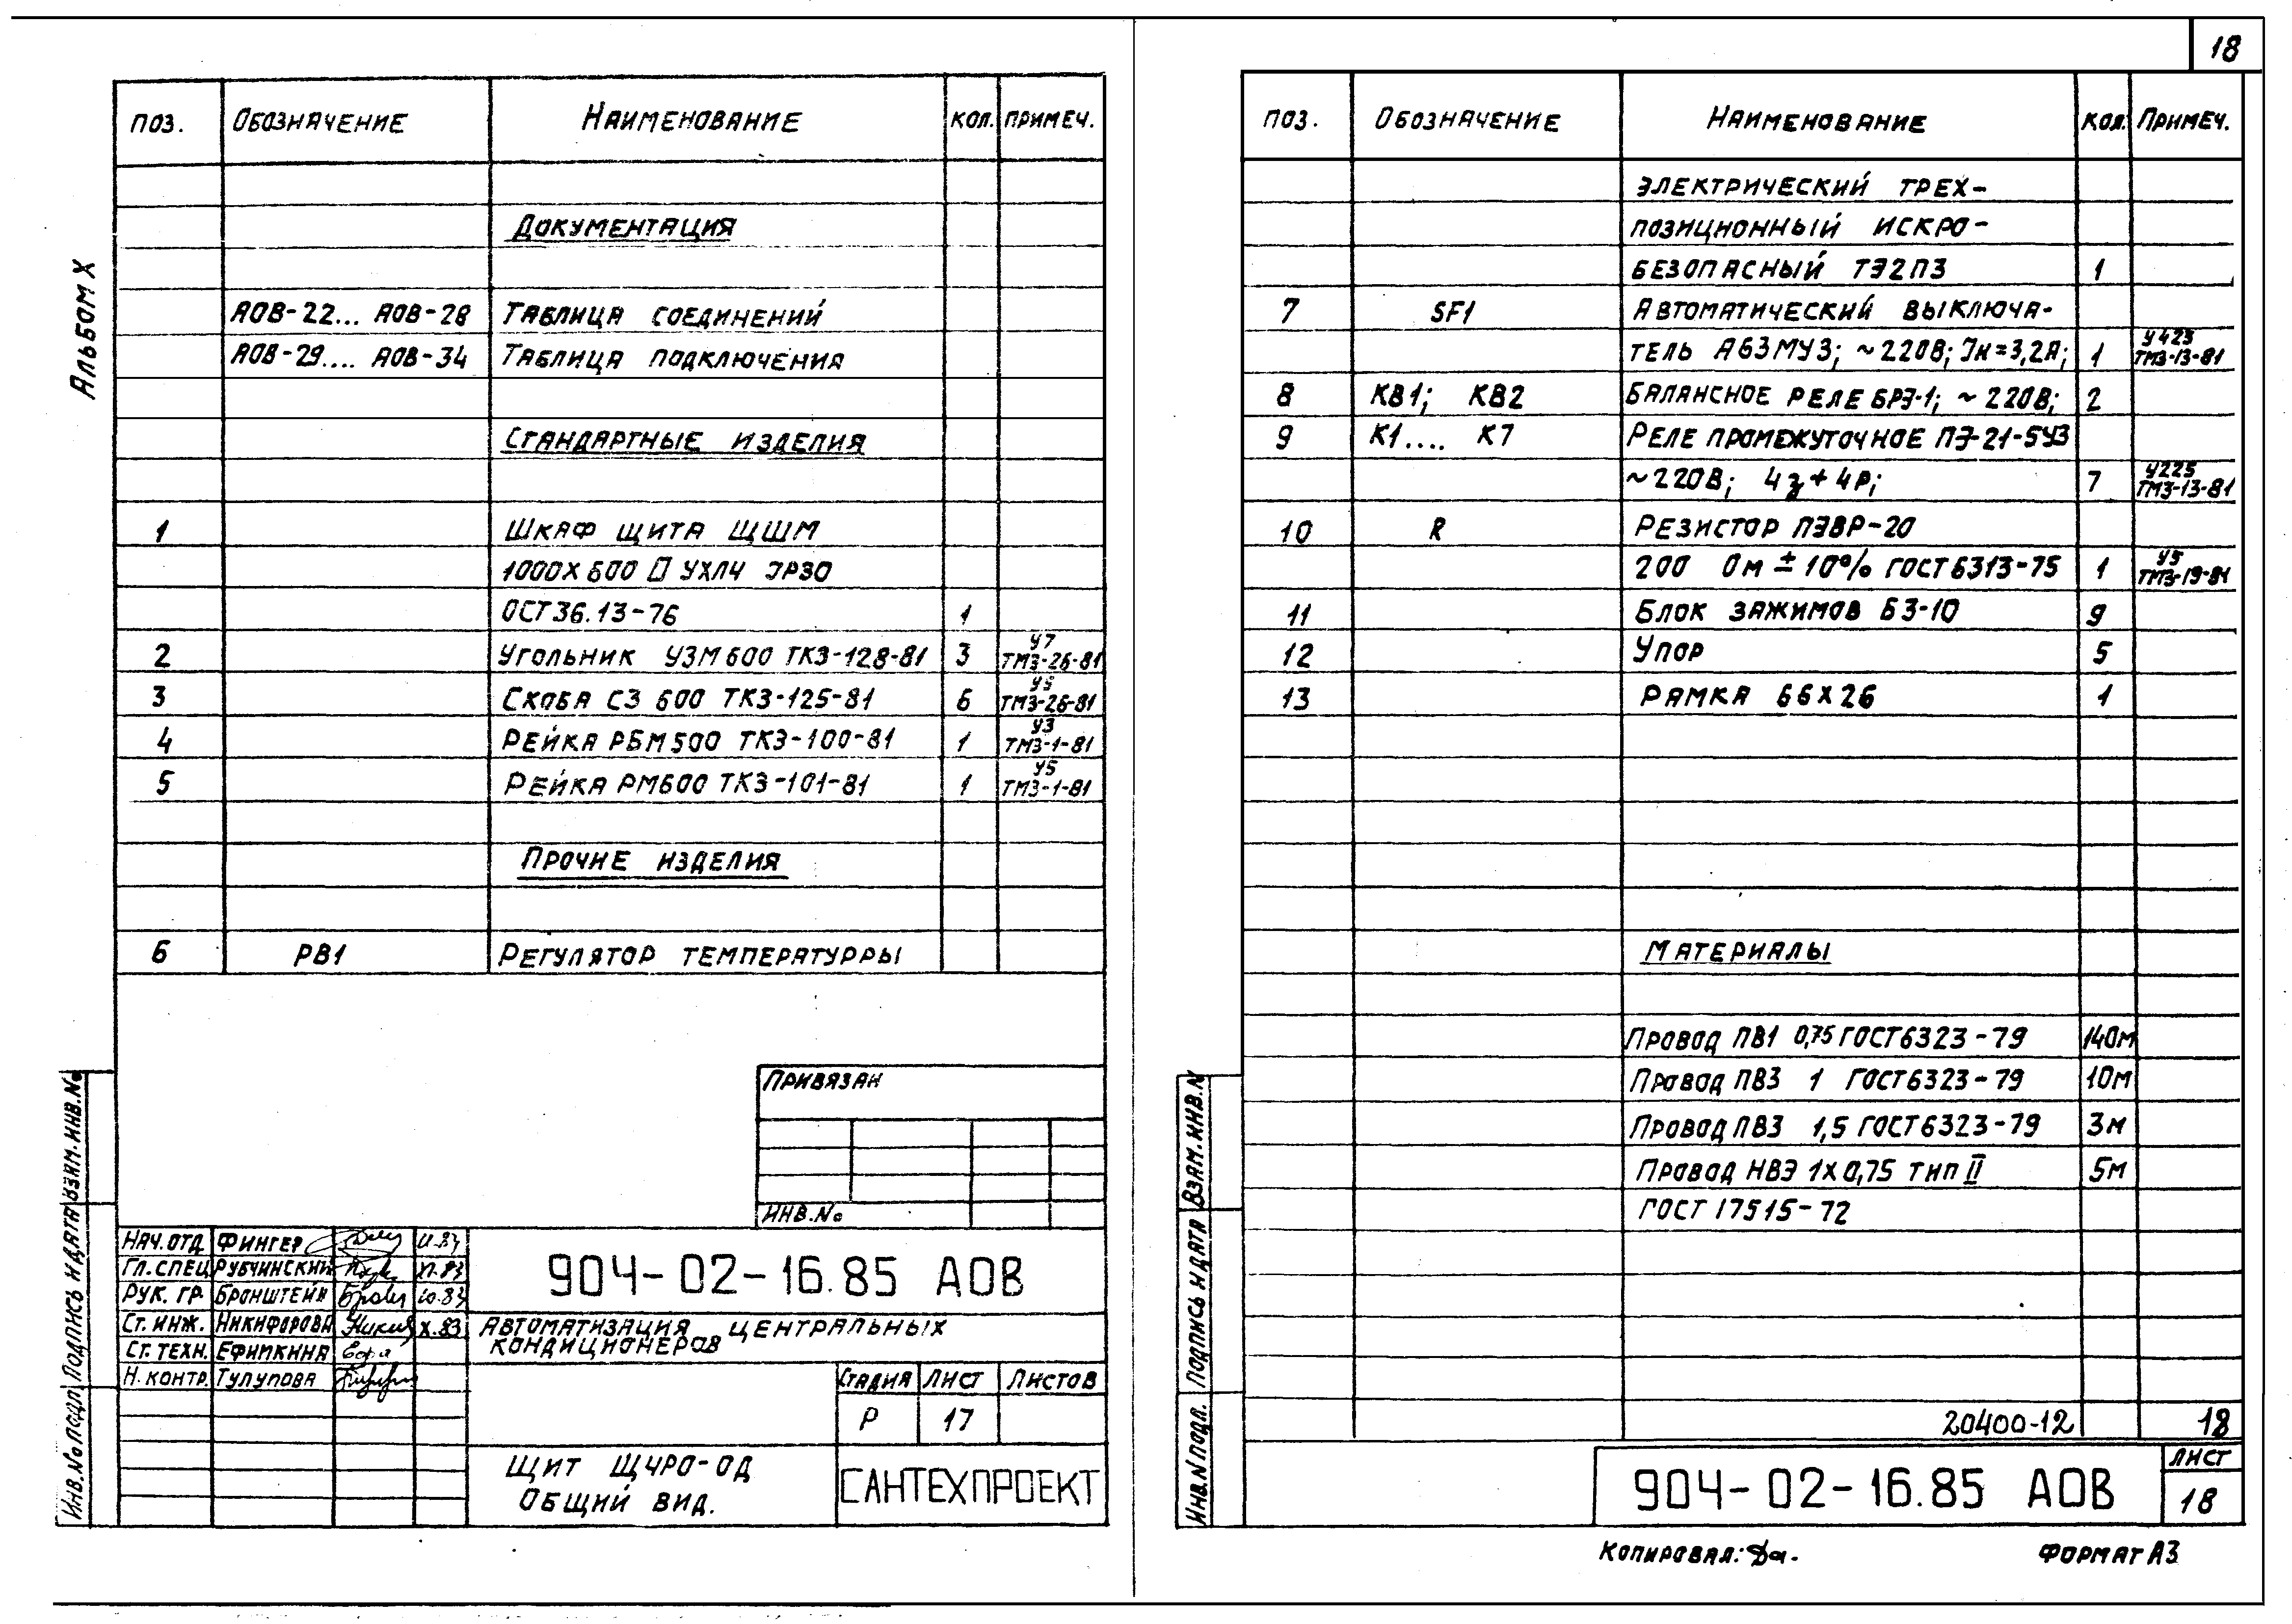 18
Альбом X
Поз. Обозначение Наименование Кол. Примеч.
Документация
АОВ-22... АОВ-28 Таблица соединений
АОВ-29.... АОВ-34 Таблица подключения
Стандартные изделия
1 Шкаф щита ЩШМ
1000х600 УХЛ4 IP30
ОСТ 36.13-76 1
2 Угольник УЗМ600 ТК3-128-81 3 У7 ТМ3-26-81
3 Скоба С3 600 ТК3-125-81 6 У5 ТМ3-26-81
4 Рейка РБМ500 ТК3-100-81 1 У3 ТМ3-1-81
5 Рейка РМ600 ТК3-101-81 1 У5 ТМ3-1-81
Прочие изделия
6 РВ1 Регулятор температурры
Привязан
Инв.№
Нач.отд Фингер 11.83
Гл.спец Рубчинский XI.83
Рук. гр. Бронштейн 10.83
Ст. инж. Никифорова X.83
Ст. техн. Ефимкина
Н. контр. Тулупова
904-02-16.85 АОВ
Автоматизация центральных
кондиционеров
Стадия Лист Листов
Р 17
Щит ЩЧРО-ОД
Общий вид.
САНТЕХПРОЕКТ
Взам.инв.№
Подпись и дата
Инв.№ подл
Поз. Обозначение Наименование Кол. Примеч.
электрический трех-
позиционный искро-
безопасный ТЭ2П3 1
7 SF1 Автоматический выключа-
тель А63МУ3; ~220В; Iн=3,2А; 1 У423 ТМ3-13-81
8 КВ1; КВ2 Балансное реле БРЭ-1; ~220В; 2
9 К1.... К7 Реле промежуточное ПЭ-21-5У3
~220В; 4з+4р; 7 У225 ТМ3-13-81
10 R Резистор ПЭВР-20
200 Ом ± 10% ГОСТ 6313-75 1 У5 ТМ3-19-81
11 Блок зажимов БЗ-10 9
12 Упор 5
13 Рамка 66х26 1
Материалы
Провод ПВ1 0,75 ГОСТ 6323-79 140м
Провод ПВ3 1 ГОСТ 6323-79 10м
Провод ПВ3 1,5 ГОСТ 6323-79 3м
Провод НВЭ 1х0,75 тип II 5м
ГОСТ 17515-72
20400-12 18
904-02-16.85 АОВ
Лист
18
Взам.инв.N
Подпись и дата
Инв.N подл.
Копировал:
Формат А3